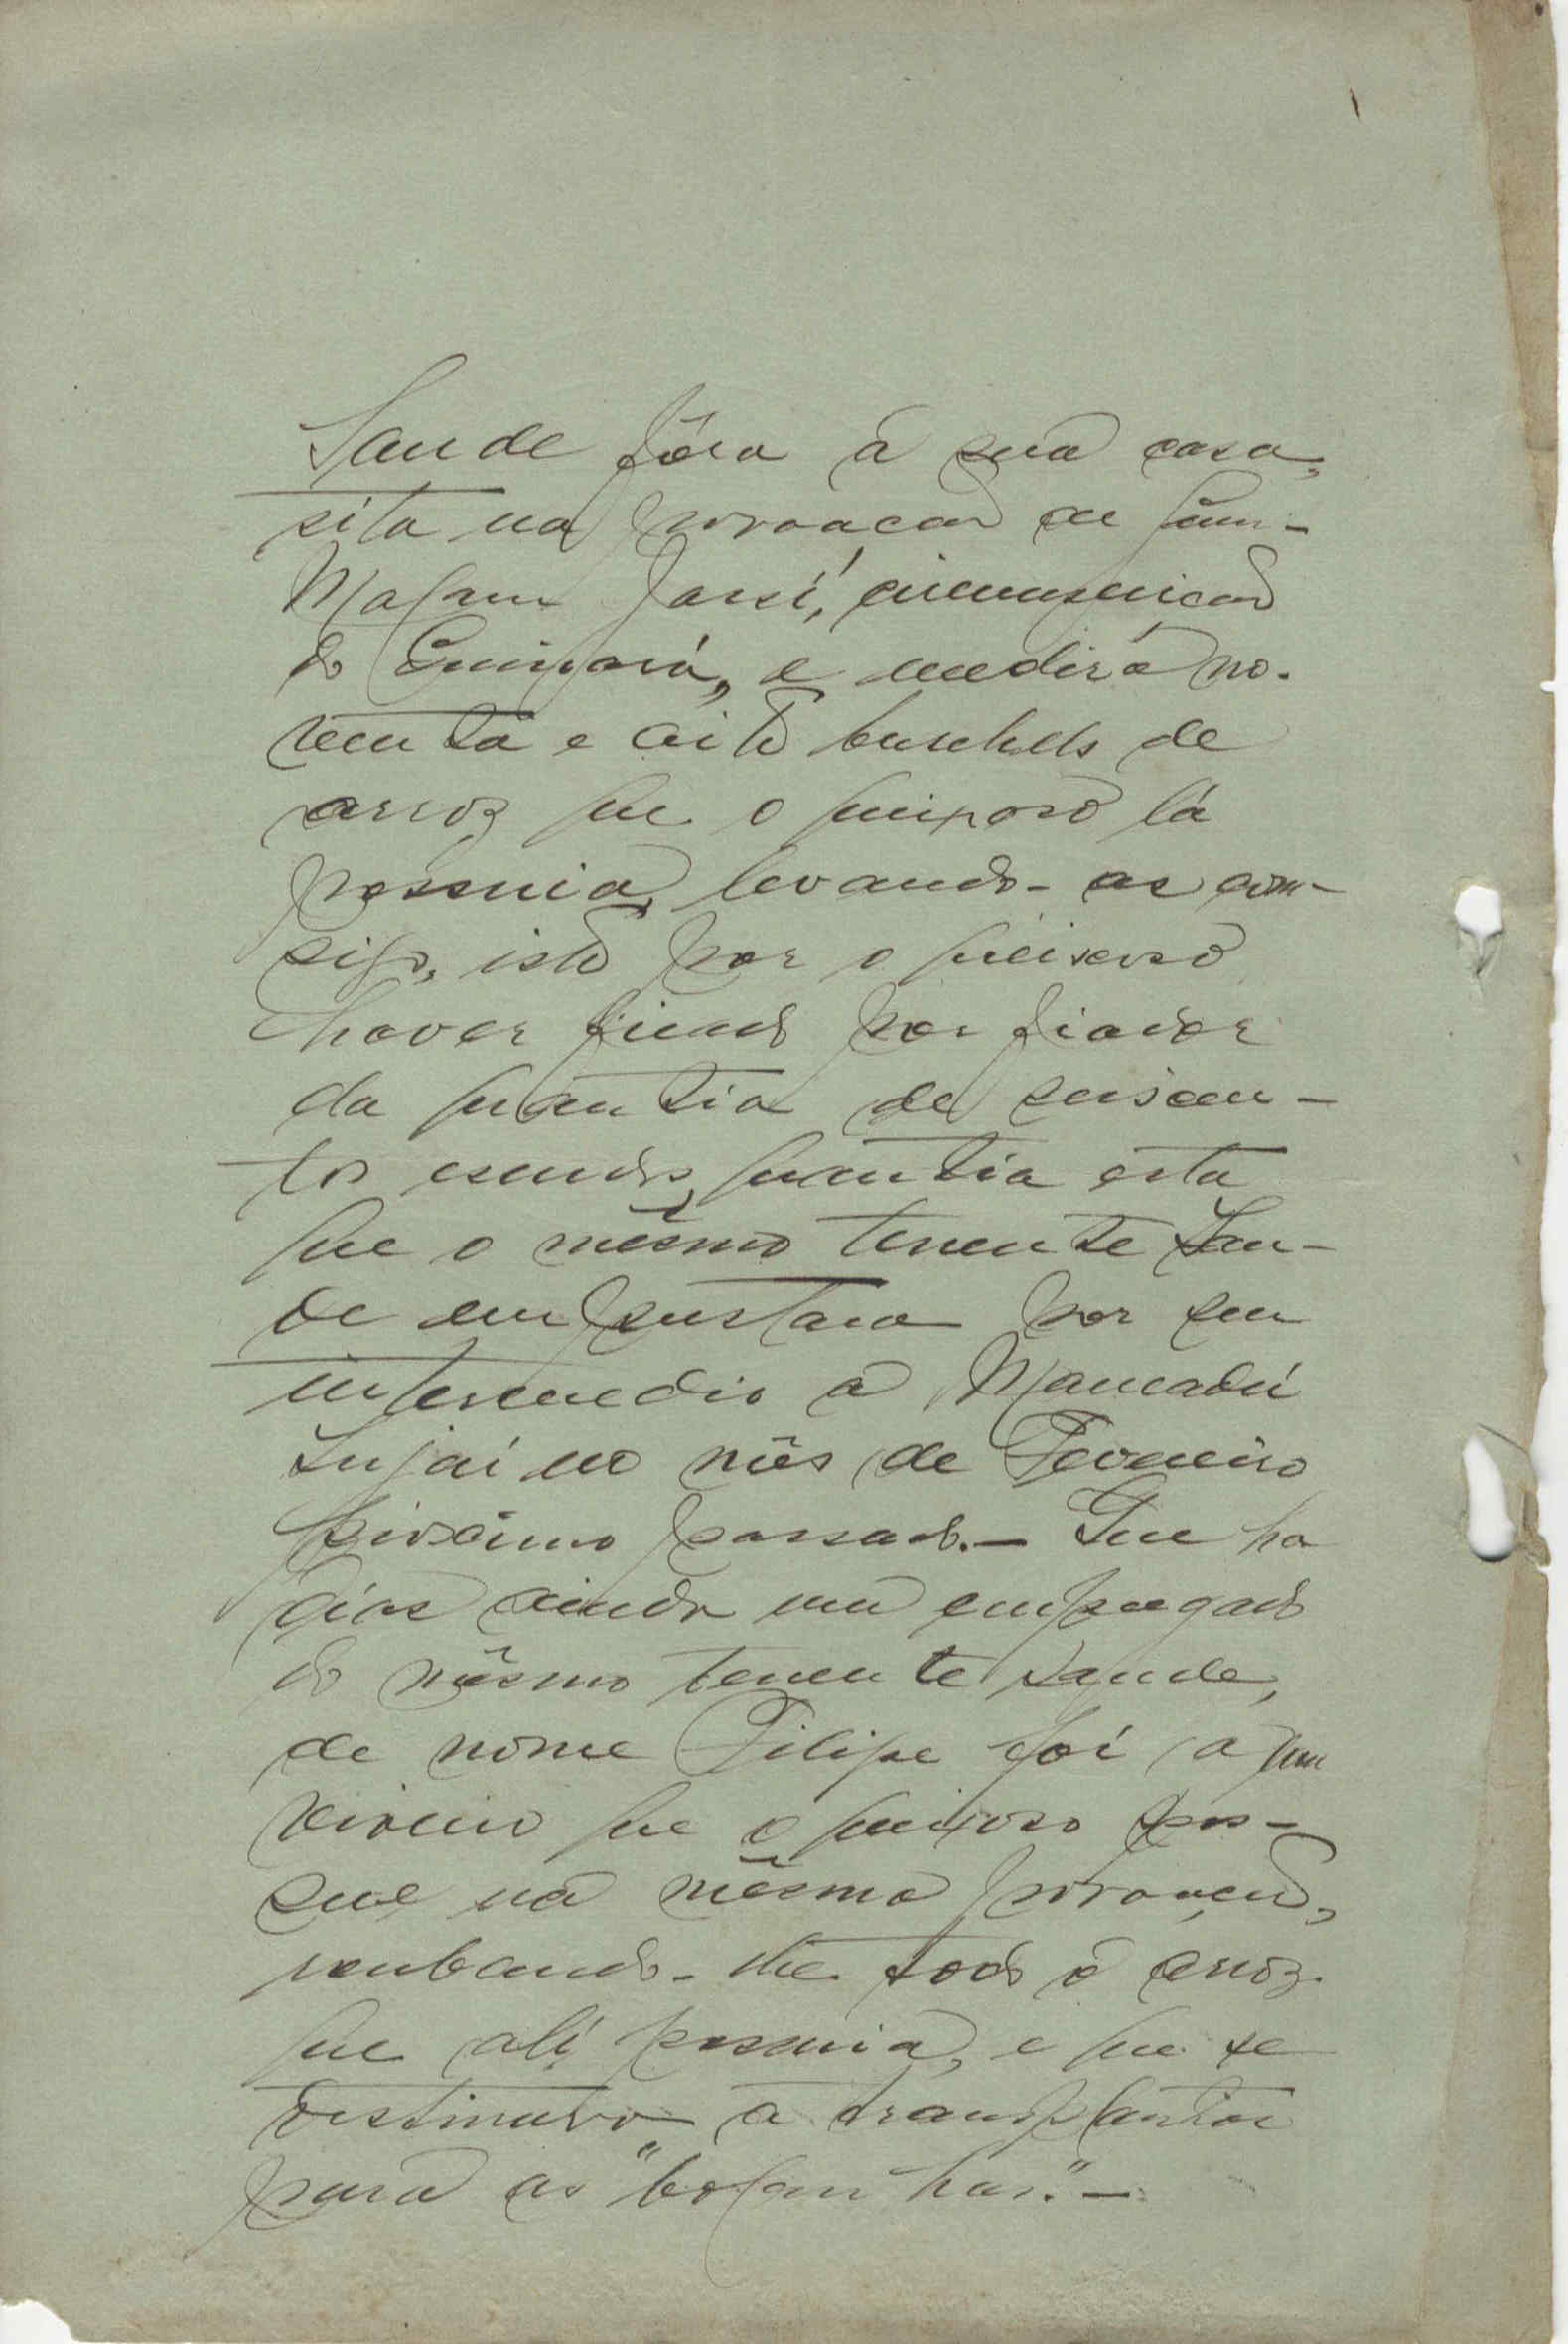 Sande fôra à sua casa,
sita na povoacão de Sum-
Mafam Jassí, circunscricão
de Quinará, e medirá no-
venta e oito buschels de
arroz que o queixoso lá
possuia, levando-as com-
sigo, isto por o queixoso
haver ficado por fiador
da quantia de seiscen-
tos escudos, quantia esta
que o mêsmo tenente San-
de emprestara por seu
intermedio a Mamadú
Injai no mês de Fevereiro
próximo passado.- Que ha
dias ainda um empregado
do mêsmo tenente Sande,
de nome Filipe foi a um
viveiro que o queixoso pos-
sue na mêsma povoação,
roubando-lhe todo o arroz
que alí possuia, e que se
destinava a transplantar
para as "bolanhas".-